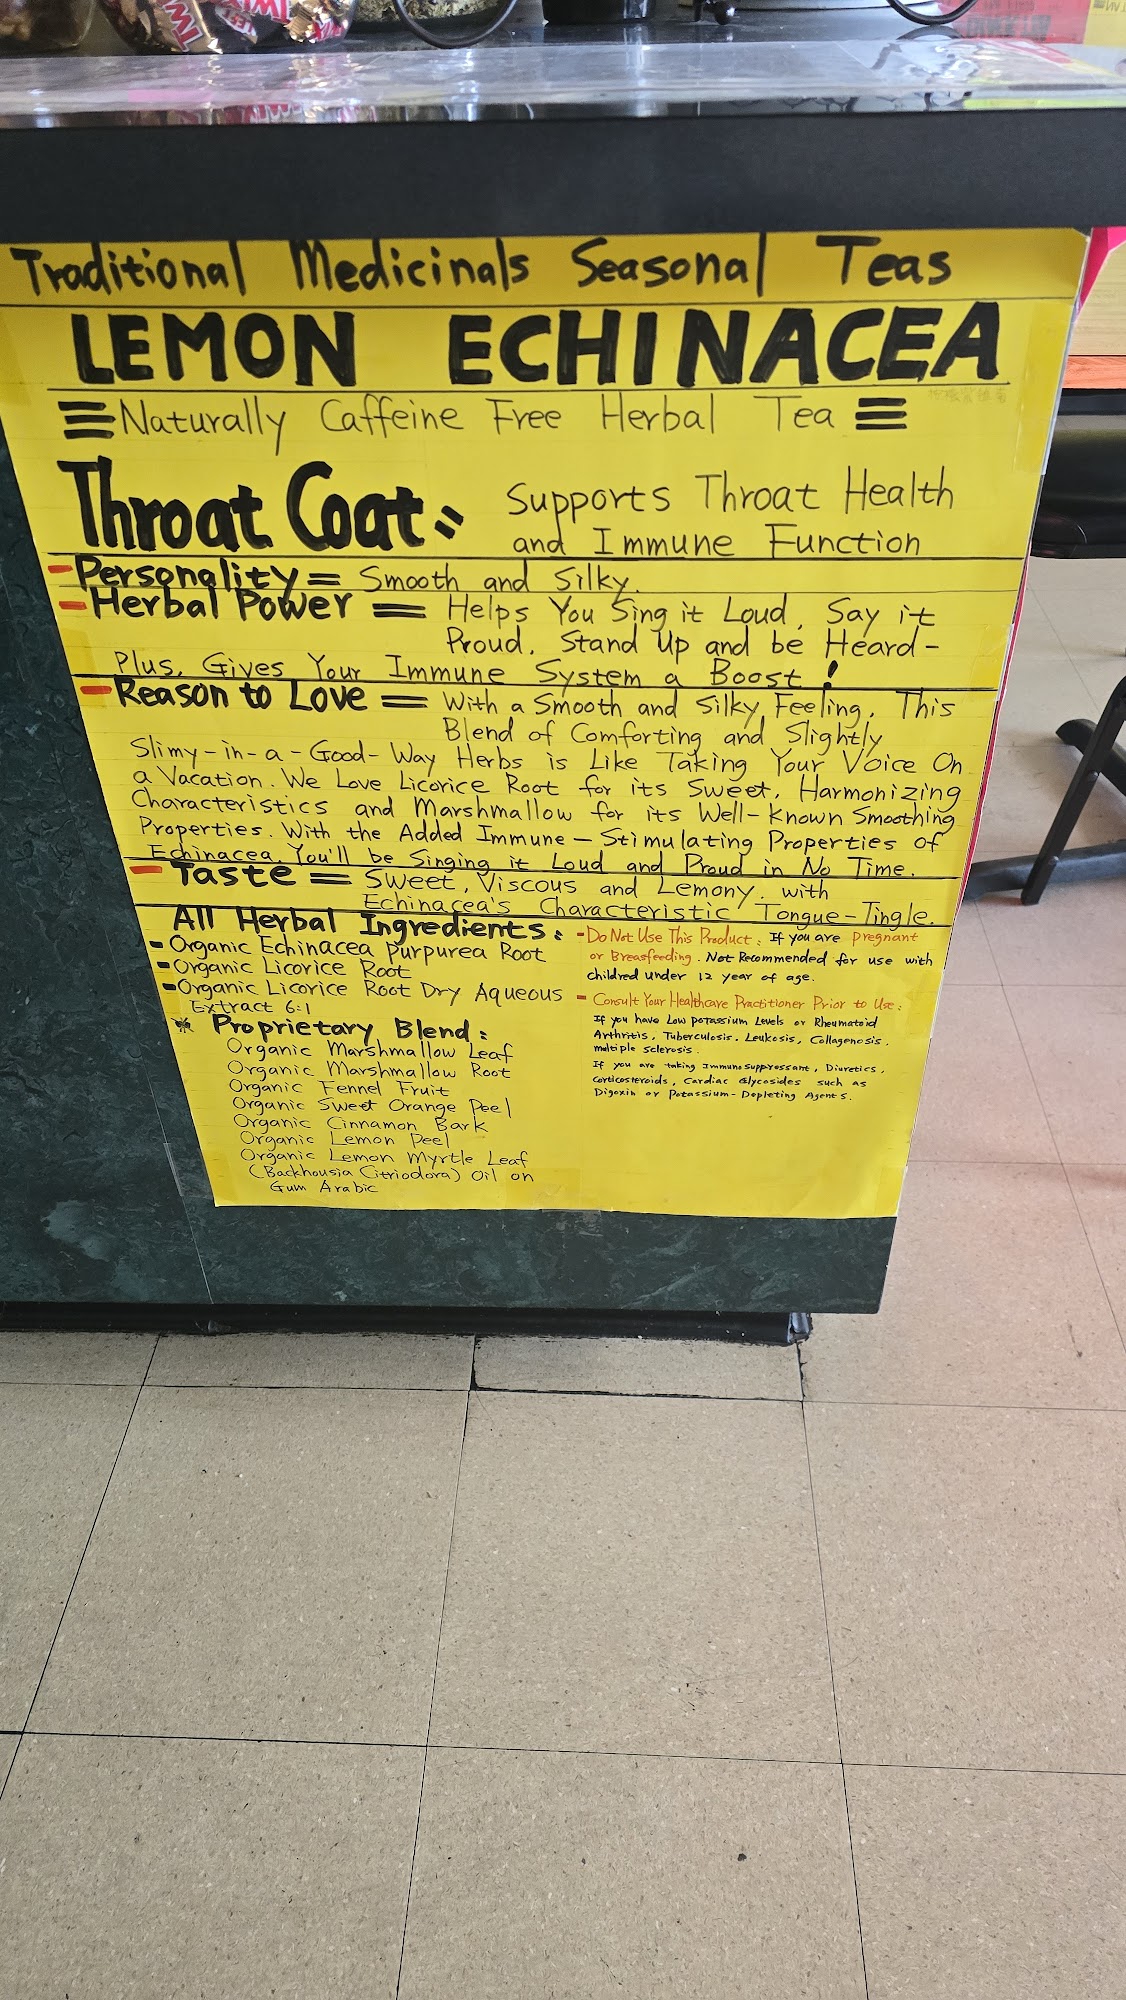 Traditional Medicinals Seasonal Teas
LEMON ECHINACEA
Naturally Caffeine Free Herbal Tea
Throat Coat: Supports Throat Health
and Immune Function
- Personality = Smooth and Silky.
- Herbal Power = Helps You Sing it Loud, Say it
Proud, Stand Up and be Heard-
Plus, Gives Your Immune System a Boost!
- Reason to Love = With a Smooth and Silky Feeling, This
Blend of Comforting and Slightly
Slimy-in-a-Good-Way Herbs is Like Taking Your Voice On
a Vacation. We Love Licorice Root for its Sweet, Harmonizing
Characteristics and Marshmallow for its Well-Known Smoothing
Properties. With the Added Immune-Stimulating Properties of
Echinacea, You'll be Singing it Loud and Proud in No Time.
- Taste = Sweet, Viscous and Lemony, with
Echinacea's Characteristic Tongue-Tingle.
All Herbal Ingredients:
- Organic Echinacea Purpurea Root
- Organic Licorice Root
- Organic Licorice Root Dry Aqueous
Extract 6:1
Proprietary Blend:
Organic Marshmallow Leaf
Organic Marshmallow Root
Organic Fennel Fruit
Organic Sweet Orange Peel
Organic Cinnamon Bark
Organic Lemon Peel
Organic Lemon Myrtle Leaf
(Backhousia Citriodora) Oil on
Gum Arabic
- Do Not Use This Product: If you are pregnant
or Breasfeeding. Not Recommended for use with
childred under 12 year of age.
- Consult Your Healthcare Practitioner Prior to Use:
If you have Low potassium Levels or Rheumatoid
Arthritis, Tuberculosis, Leukosis, Collagenosis,
multiple sclerosis.
If you are taking Immunosuppressant, Diuretics,
Corticosteroids, Cardiac Glycosides such as
Digoxin or Potassium-Depleting Agents.